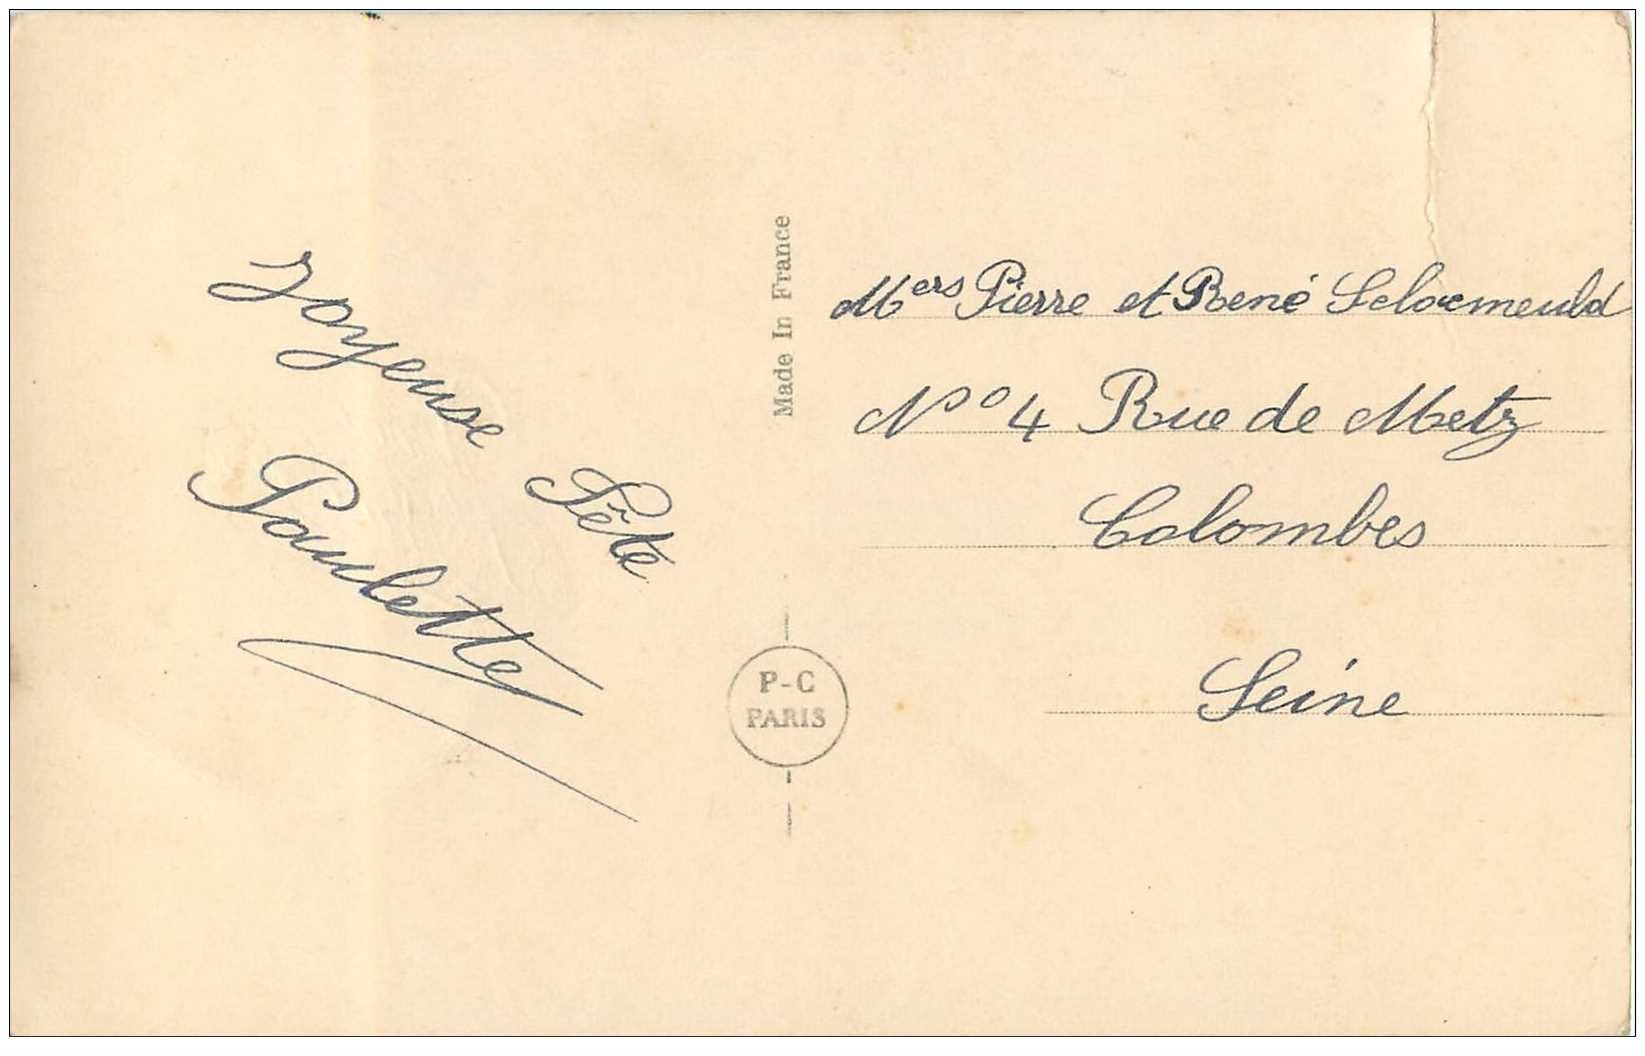 Joyeuse Fête
Paulette
Made In France
P-C
PARIS
Mers Pierre et René
No 4 Rue de Metz
Colombes
Seine